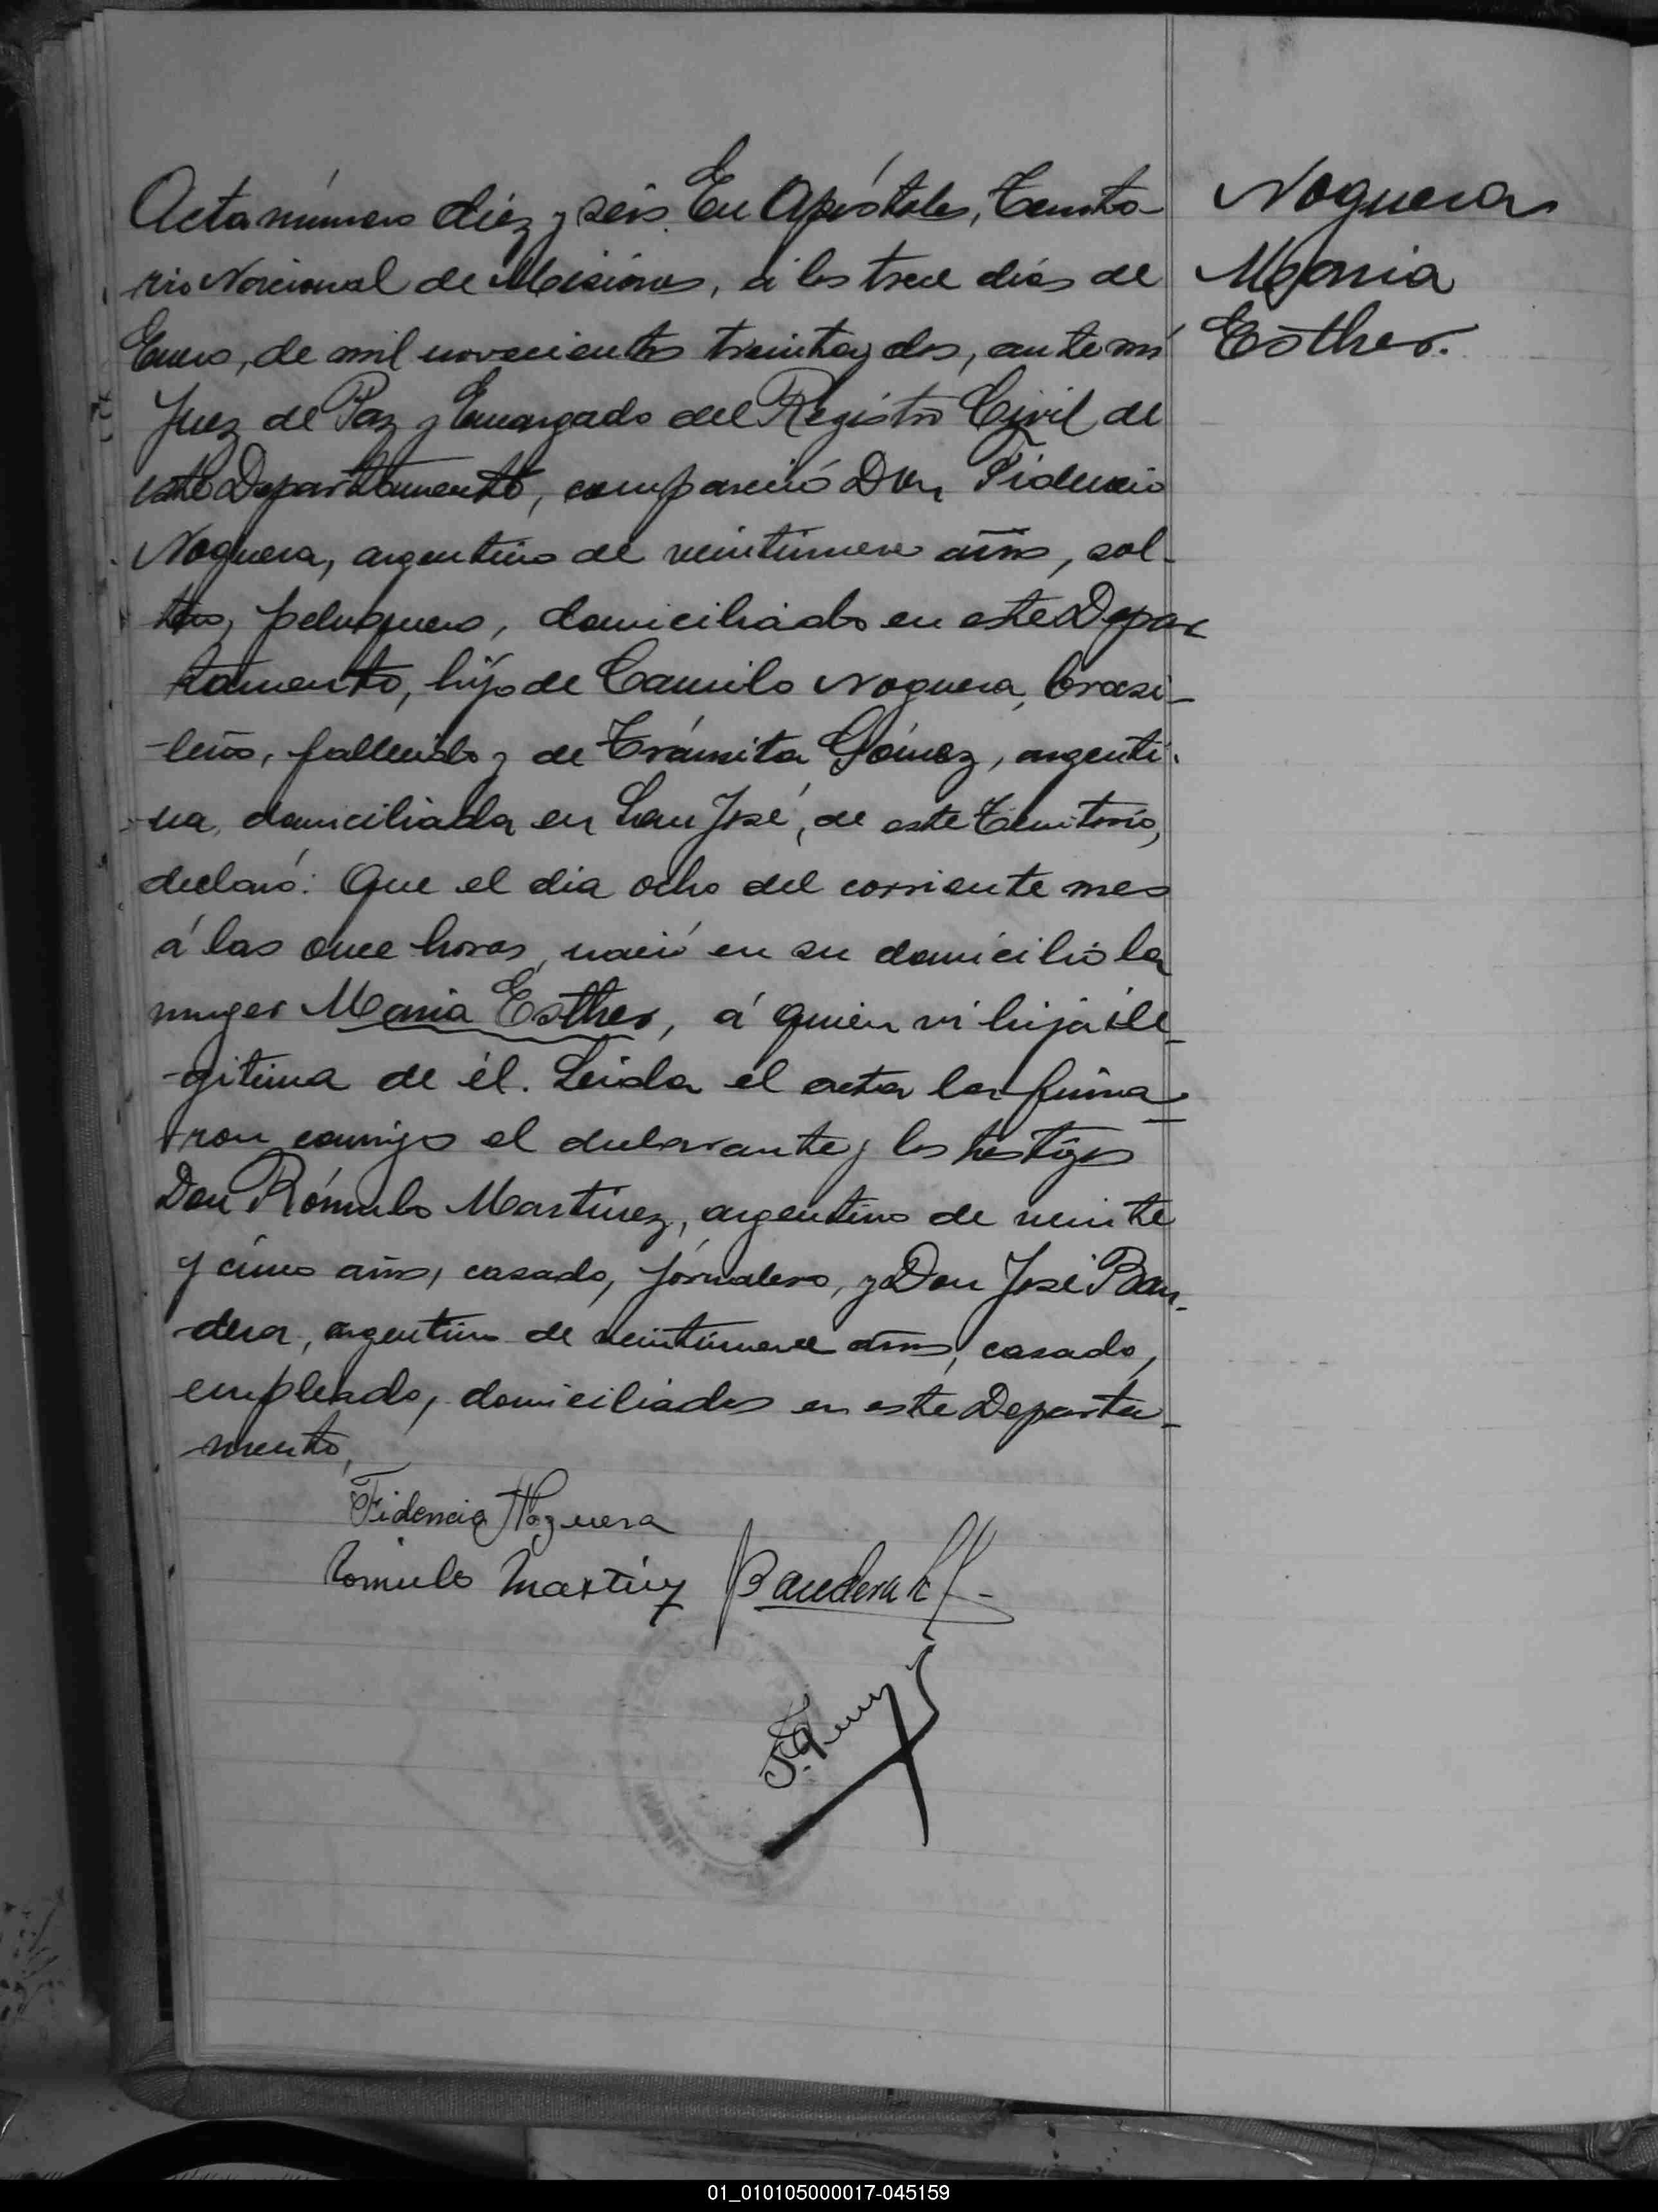 Acta número diez y seis. En Apóstoles, Territo-
rio Nacional de Misiones, á los trece días de
Enero, de mil novecientos treinta y dos, ante mí
Juez de Paz y Encargado del Registro Civil de
este Departamento, compareció Don Fidencio
Noguera, argentino de veintinueve años, sol-
tero, peluquero, domiciliado en este Depar
tamento, hijo de Camilo Noguera, brasi-
leño, fallecido y de Tránsita Gómez, argenti-
na, domiciliada en San José, de este Territorio,
declaró: Que el dia ocho del corriente mes
á las once horas, nació en su domicilio la
muger Maria Esther, á quien vi hija ile-
gitima de él. Leida el acta la firma-
ron conmigo el declarante y los testigos
Don Rómulo Martínez, argentino de veinte
y cinco años, casado, jornalero, y Don José Ban-
dera, argentino de veintinueve años, casado,
empleado, domiciliados en este Departa-
mento,
Fidencio Noguera
Romulo Martinez Bandera
Noguera
Maria
Esther.
01_010105000017-045159